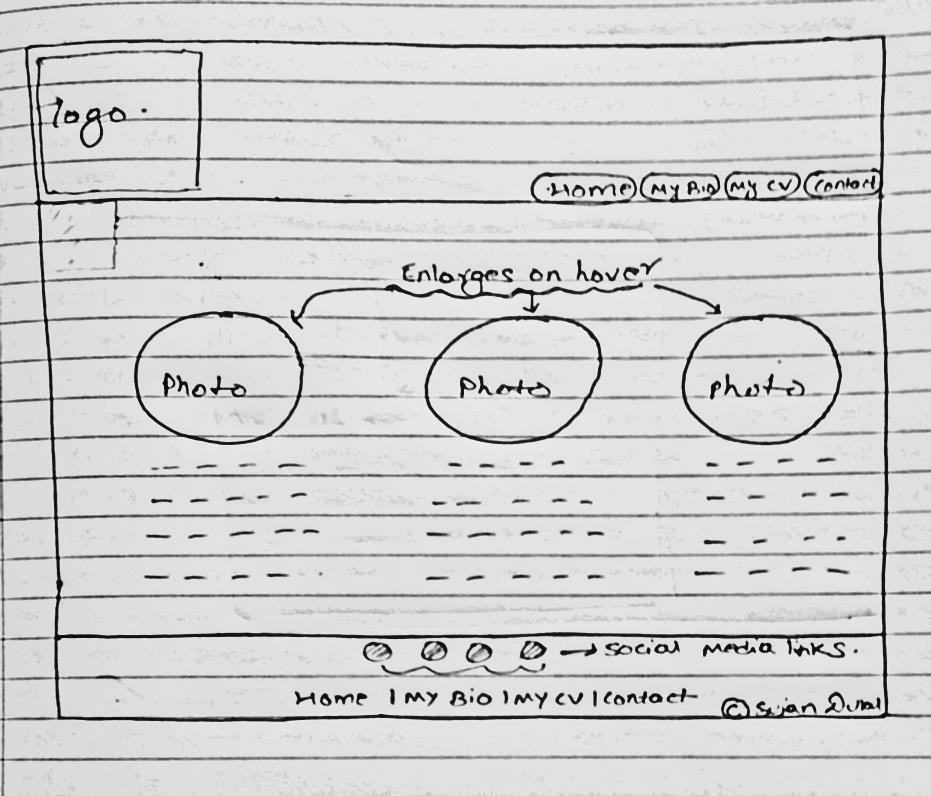 logo.
Home My Bio My CV Contact
Enlarges on hover
Photo Photo Photo
social media links.
Home | My Bio | My CV | Contact
© Sujan Dulal